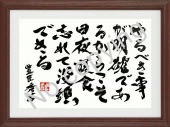 やるべき事
が明確であ
るからこそ
日夜寝食を
忘れて没頭
できる
豊臣秀吉